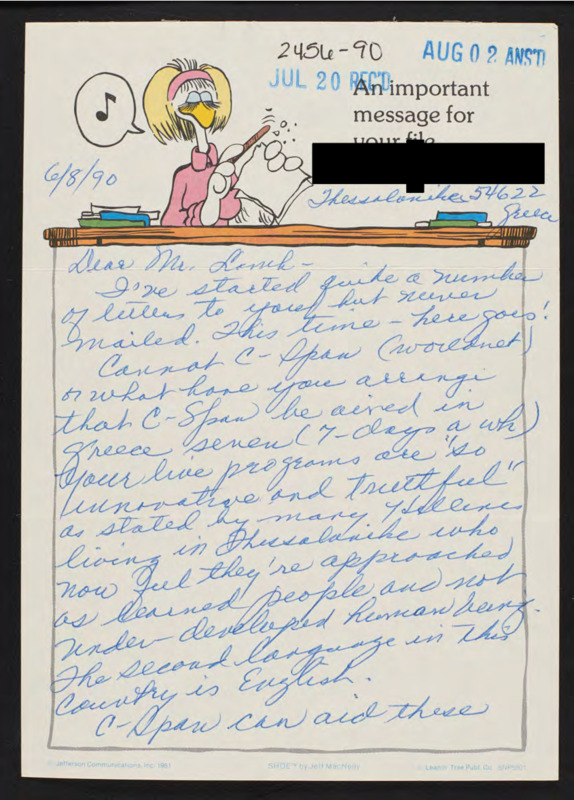 2456-90
AUG 02 ANS'D
JUL 20 REC'D
An important
message for
your file
6/8/90
Thessalonike 54622
Greece
Dear Mr. Lamb -
I've started quite a number
of letters to you, but never
mailed. This time - here goes!
Cannot C-Span (worldnet)
or what have you arrange
that C-Span be aired in
Greece seven (7-days a wk)
your live programs are "so
innovative and truthful"
as stated by many Hellenes
living in Thessalonike who
now feel they're approached
as learned people and not
under-developed human being.
The second language in this
country is English.
C-Span can aid these
© Jefferson Communications, Inc. 1981
SHOE™ by Jeff MacNelly
© Leanin' Tree Publ. Co.